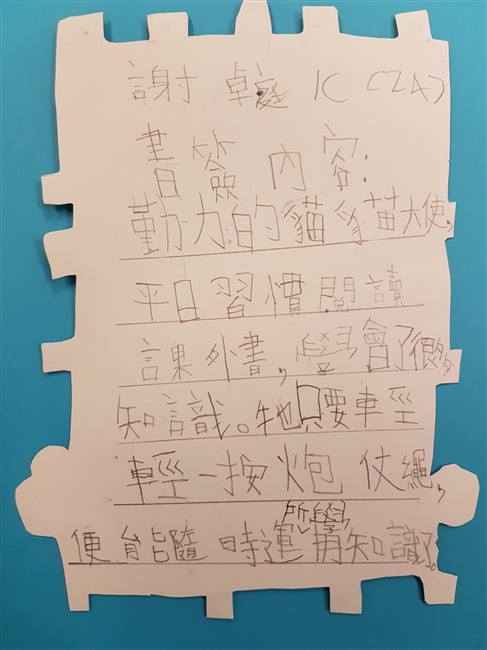 謝卓庭 1C (24)
書簽內容:
勤力的貓貓大使,
平日習慣閱讀
課外書,學會了很多
知識。牠只要輕
輕一按炮仗繩,
便能隨時運用所學知識了。